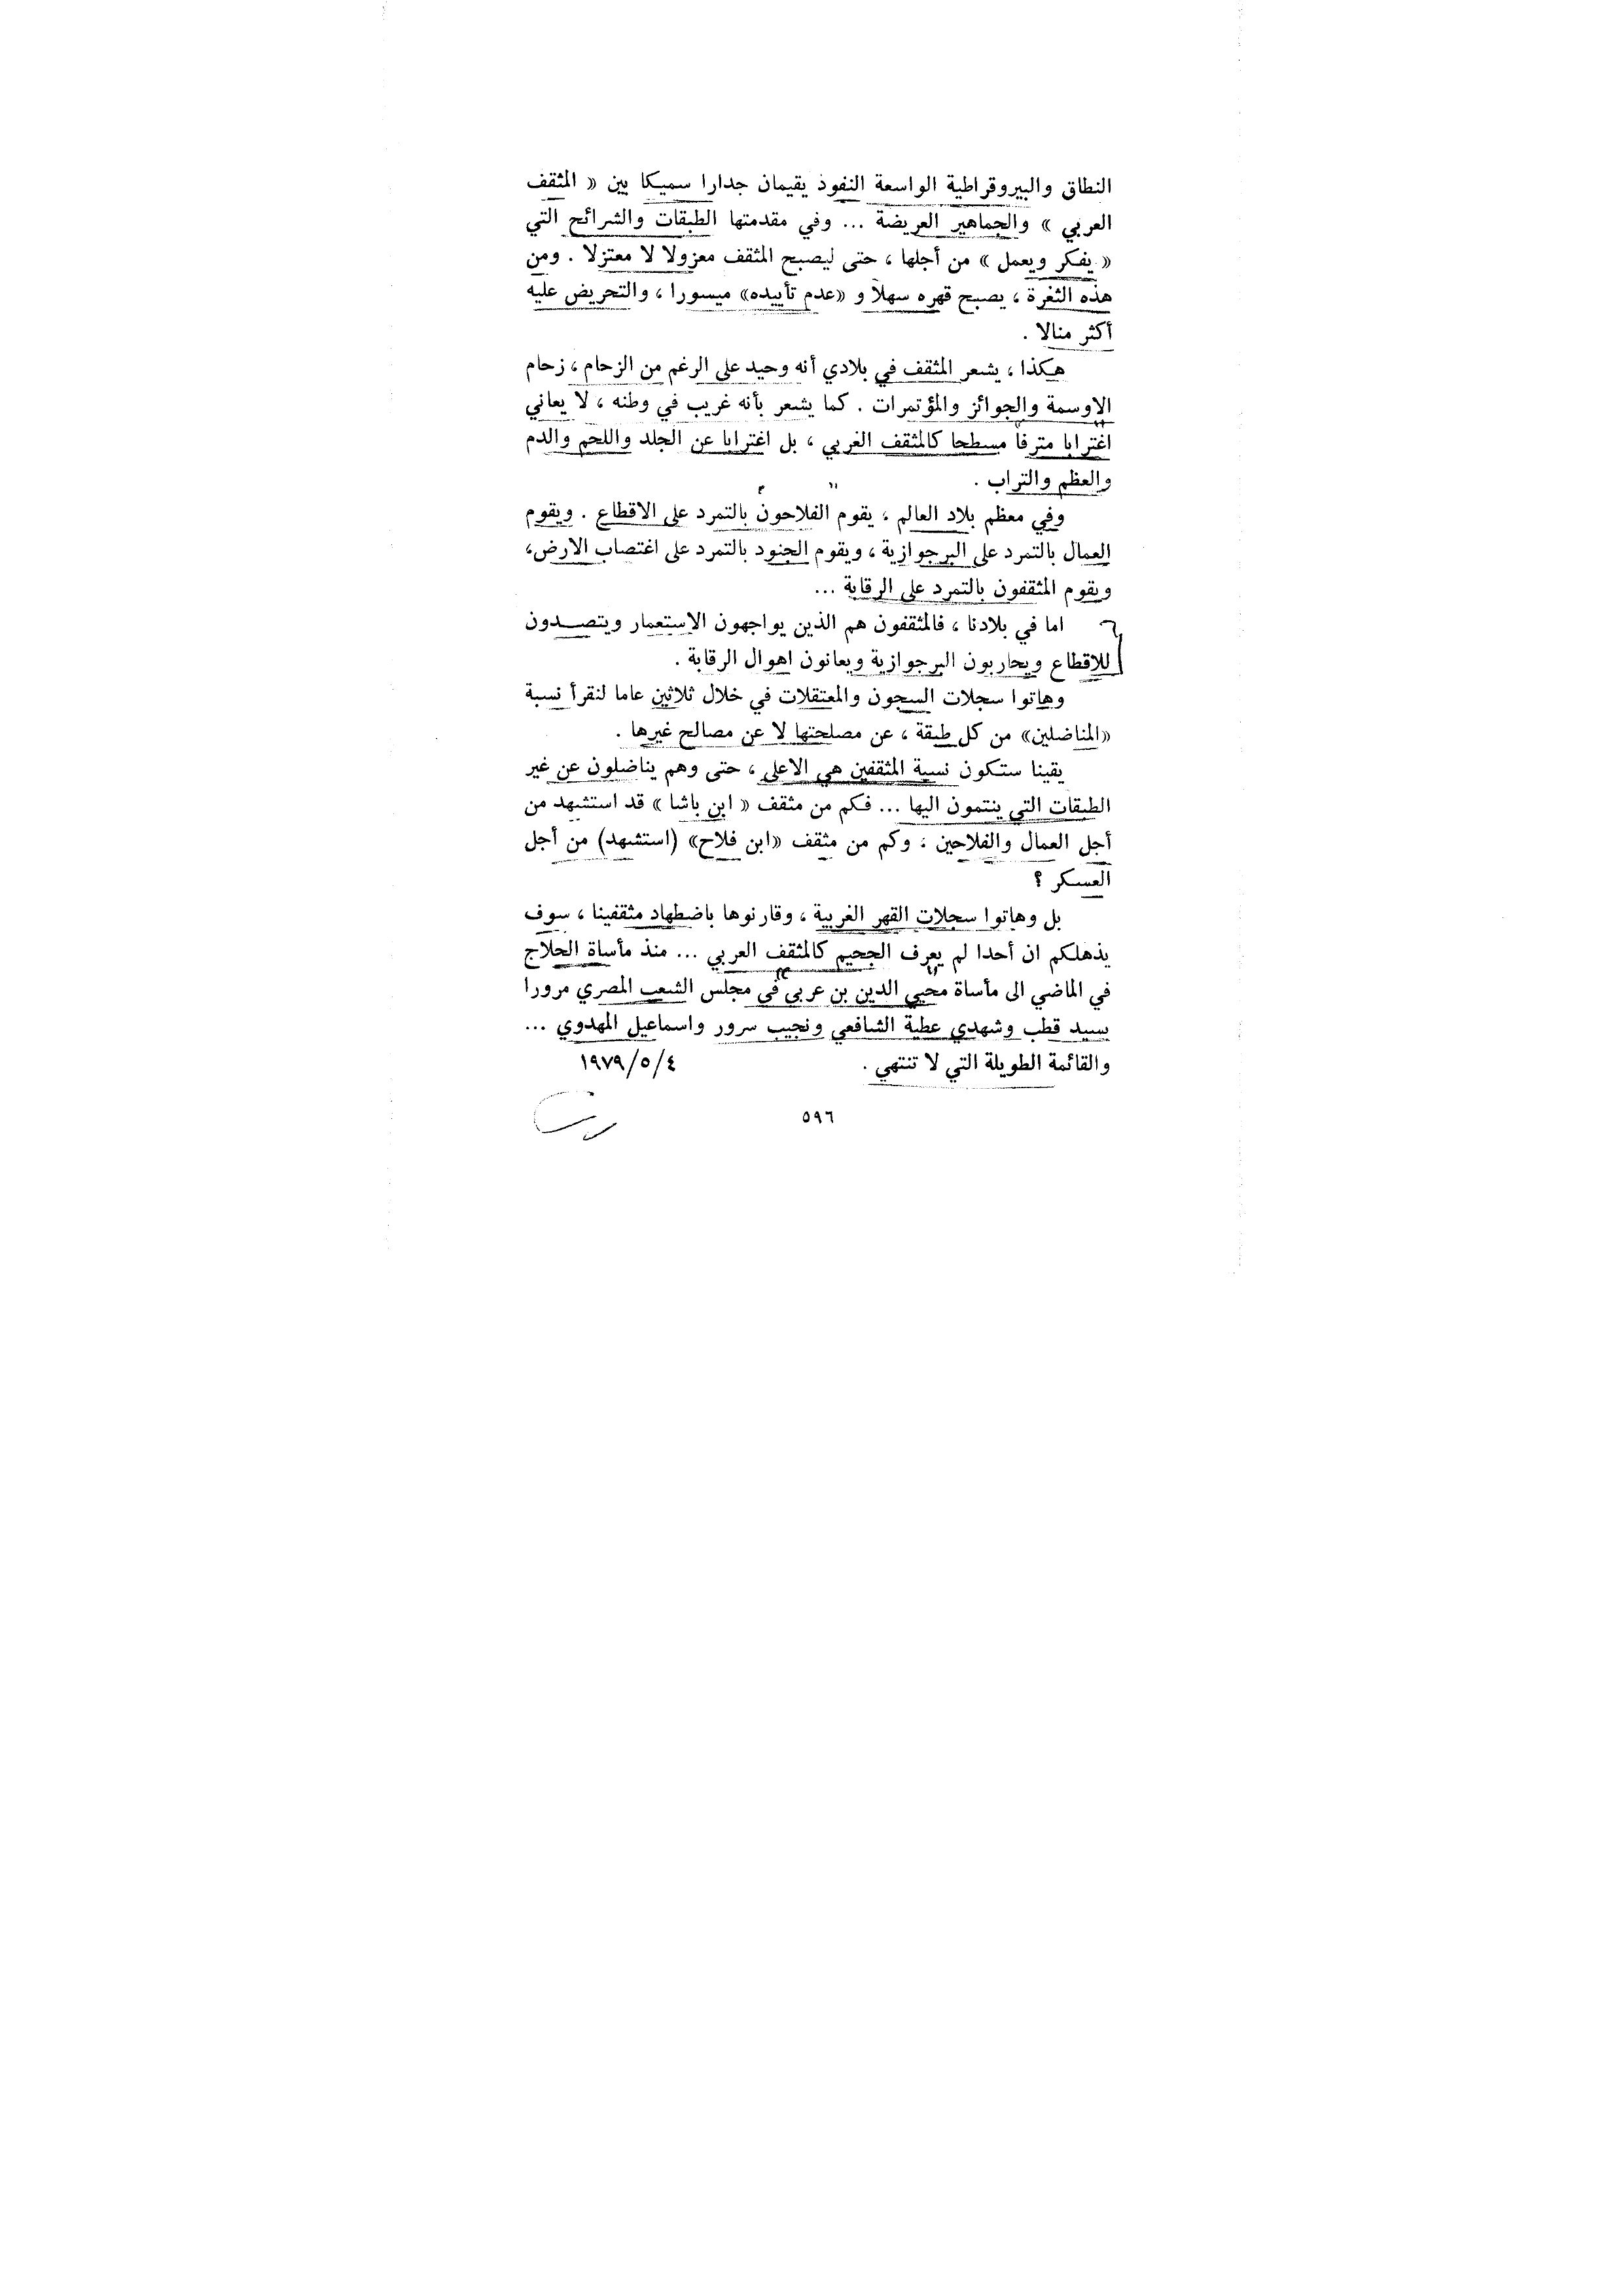 النطاق والبيروقراطية الواسعة النفوذ يقيمان جدارا سميكا بين « المثقف
العربي » والجماهير العريضة ... وفي مقدمتها الطبقات والشرائح التي
« يفكر ويعمل » من أجلها ، حتى ليصبح المثقف معزولا لا معتزلا . ومن
هذه الثغرة ، يصبح قهره سهلا و «عدم تأييده» ميسورا ، والتحريض عليه
أكثر منالا .
هكذا ، يشعر المثقف في بلادي أنه وحيد على الرغم من الزحام ، زحام
الاوسمة والجوائز والمؤتمرات . كما يشعر بأنه غريب في وطنه ، لا يعاني
اغترابا مترفا مسطحا كالمثقف الغربي ، بل اغترابا عن الجلد واللحم والدم
والعظم والتراب .
وفي معظم بلاد العالم ، يقوم الفلاحون بالتمرد على الاقطاع . ويقوم
العمال بالتمرد على البرجوازية ، ويقوم الجنود بالتمرد على اغتصاب الارض،
ويقوم المثقفون بالتمرد على الرقابة ...
اما في بلادنا ، فالمثقفون هم الذين يواجهون الاستعمار ويتصدون
للاقطاع ويحاربون البرجوازية ويعانون اهوال الرقابة .
وهاتوا سجلات السجون والمعتقلات في خلال ثلاثين عاما لنقرأ نسبة
«المناضلين» من كل طبقة ، عن مصلحتها لا عن مصالح غيرها .
يقينا ستكون نسبة المثقفين هي الاعلى ، حتى وهم يناضلون عن غير
الطبقات التي ينتمون اليها ... فكم من مثقف « ابن باشا » قد استشهد من
أجل العمال والفلاحين ، وكم من مثقف «ابن فلاح» (استشهد) من أجل
العسكر ؟
بل وهاتوا سجلات القهر الغربية ، وقارنوها باضطهاد مثقفينا ، سوف
يذهلكم ان أحدا لم يعرف الجحيم كالمثقف العربي ... منذ مأساة الحلاج
في الماضي الى مأساة محيي الدين بن عربي في مجلس الشعب المصري مرورا
بسيد قطب وشهدي عطية الشافعي ونجيب سرور واسماعيل المهدوي ...
والقائمة الطويلة التي لا تنتهي . ٤/٥/١٩٧٩
٥٩٦